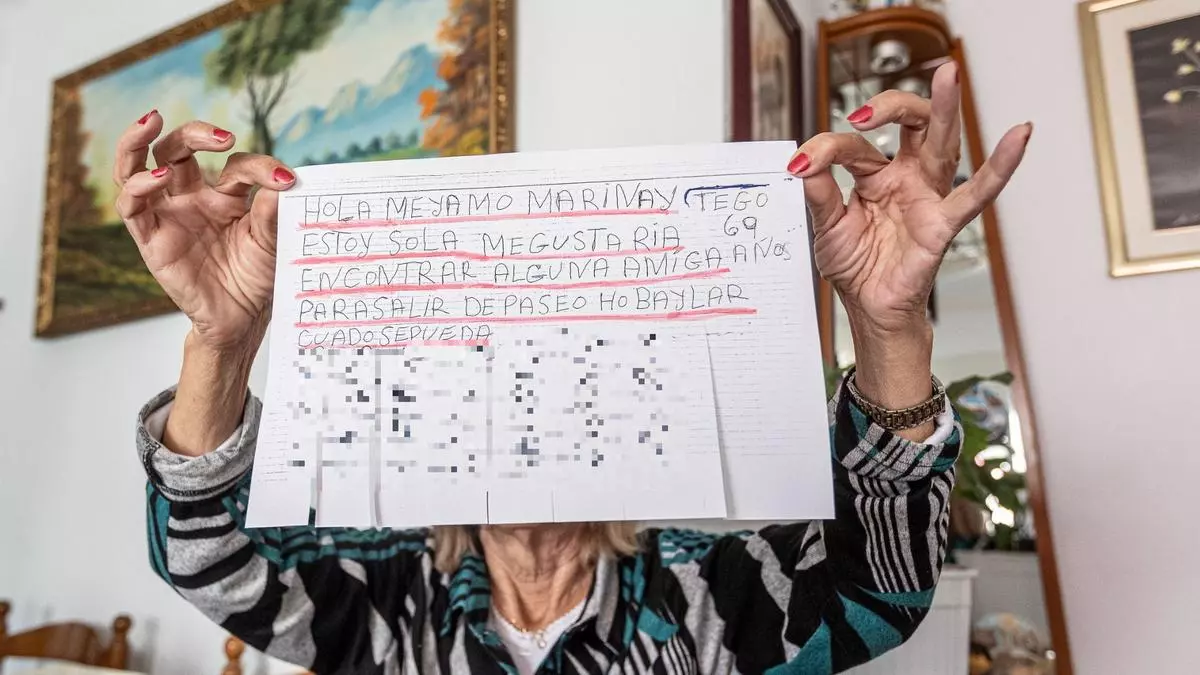 HOLA MEYAMO MARINAY (TEGO
69
ESTOY SOLA MEGUSTARIA
AÑOS
ENCONTRAR ALGUNA AMIGA
PARASALIR DEPASEO HO BAYLAR
CUADOSEPUEDA